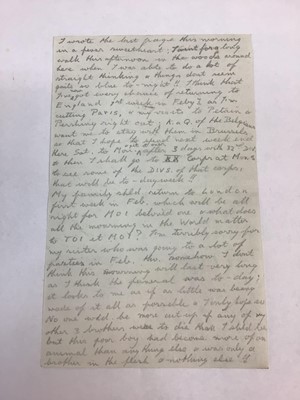 I wrote the last page this morning
in a fever sweetheart. I went for a body
walk this afternoon in the woods around
here when I was able to do a lot of
straight thinking & things dont seem
quite so blue to-night!! I think that
I've got every chance of returning to
England 1st week in Feby & as I'm
cutting Paris, & my visits to Petain &
Pershing right out; K. & Q. of the Belgians
want me to stay with them in Brussels
so that I hope to spend next week end
there but to-Mon after 3 days with 32nd Div
& then I shall go to Corps at Mons
to see some of the DIVS of that corps;
that will be to-day week!!
My family shld return to London
first week in Feb. which will be all
right for MOI beloved one & what does
all this mourning in the world matter
to TOI et MOI? I'm terribly sorry for
my sister who was going to a lot of
parties in Feb. tho. somehow I dont
think this mourning will last very long
as I think the funeral was to-day;
it looks to me as if as little was being
made of it all as possible & I only hope so
No one wld be more cut up if any of my
other 3 brothers were to die than I shld be,
but this poor boy had become more of an
animal than anything else & was only a
brother in the flesh & nothing else!!